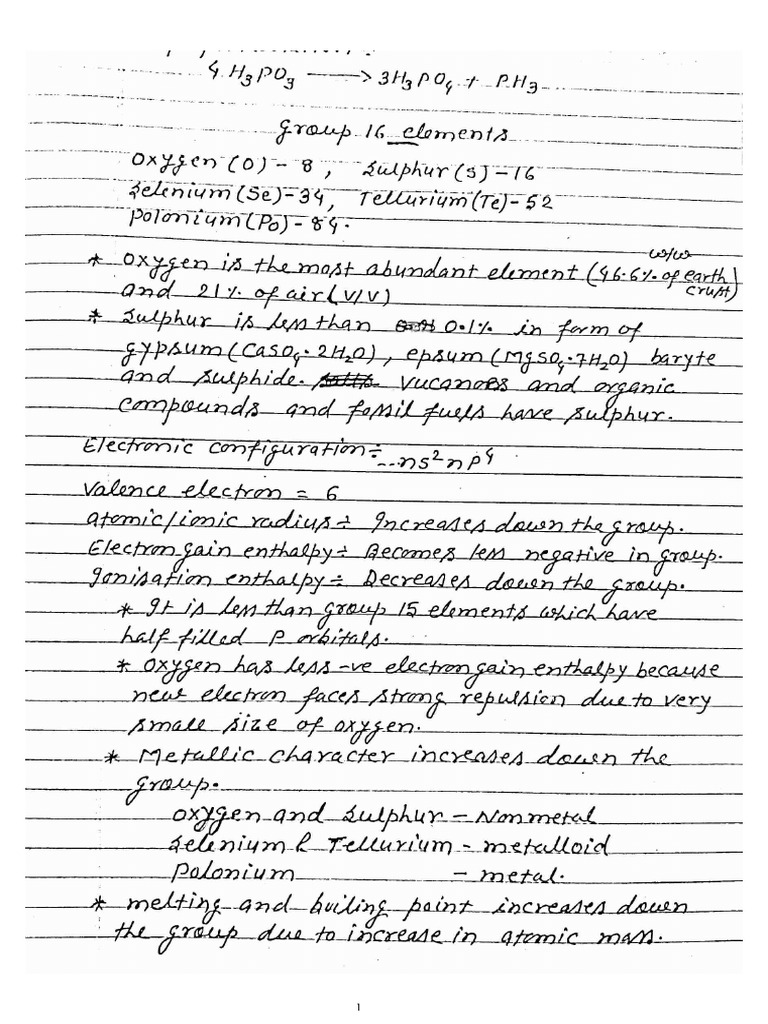 4 H₃PO₃ ⟶ 3H₃PO₄ + PH₃
Group 16 elements
Oxygen (O) - 8 , Sulphur (S) - 16
Selenium (Se) - 34, Tellurium (Te) - 52
Polonium (Po) - 84.
w/w
* Oxygen is the most abundant element (46.6% of earth crust)
and 21% of air (V/V)
* Sulphur is less than 0.1% in form of
gypsum (CaSO₄·2H₂O), epsum (MgSO₄·7H₂O) baryte
and sulphide. Vucanoes and organic
compounds and fossil fuels have sulphur.
Electronic configuration ÷ ...ns²np⁴
Valence electron = 6
atomic/ionic radius ÷ Increases down the group.
Electron gain enthalpy ÷ Becomes less negative in group.
Ionisation enthalpy ÷ Decreases down the group.
* It is less than group 15 elements which have
half filled P orbitals.
* Oxygen has less -ve electron gain enthalpy because
new electron faces strong repulsion due to very
small size of oxygen.
* Metallic character increases down the
group.
Oxygen and Sulphur - Nonmetal
Selenium & Tellurium - metalloid
Polonium - metal.
* melting and boiling point increases down
the group due to increase in atomic mass.
1